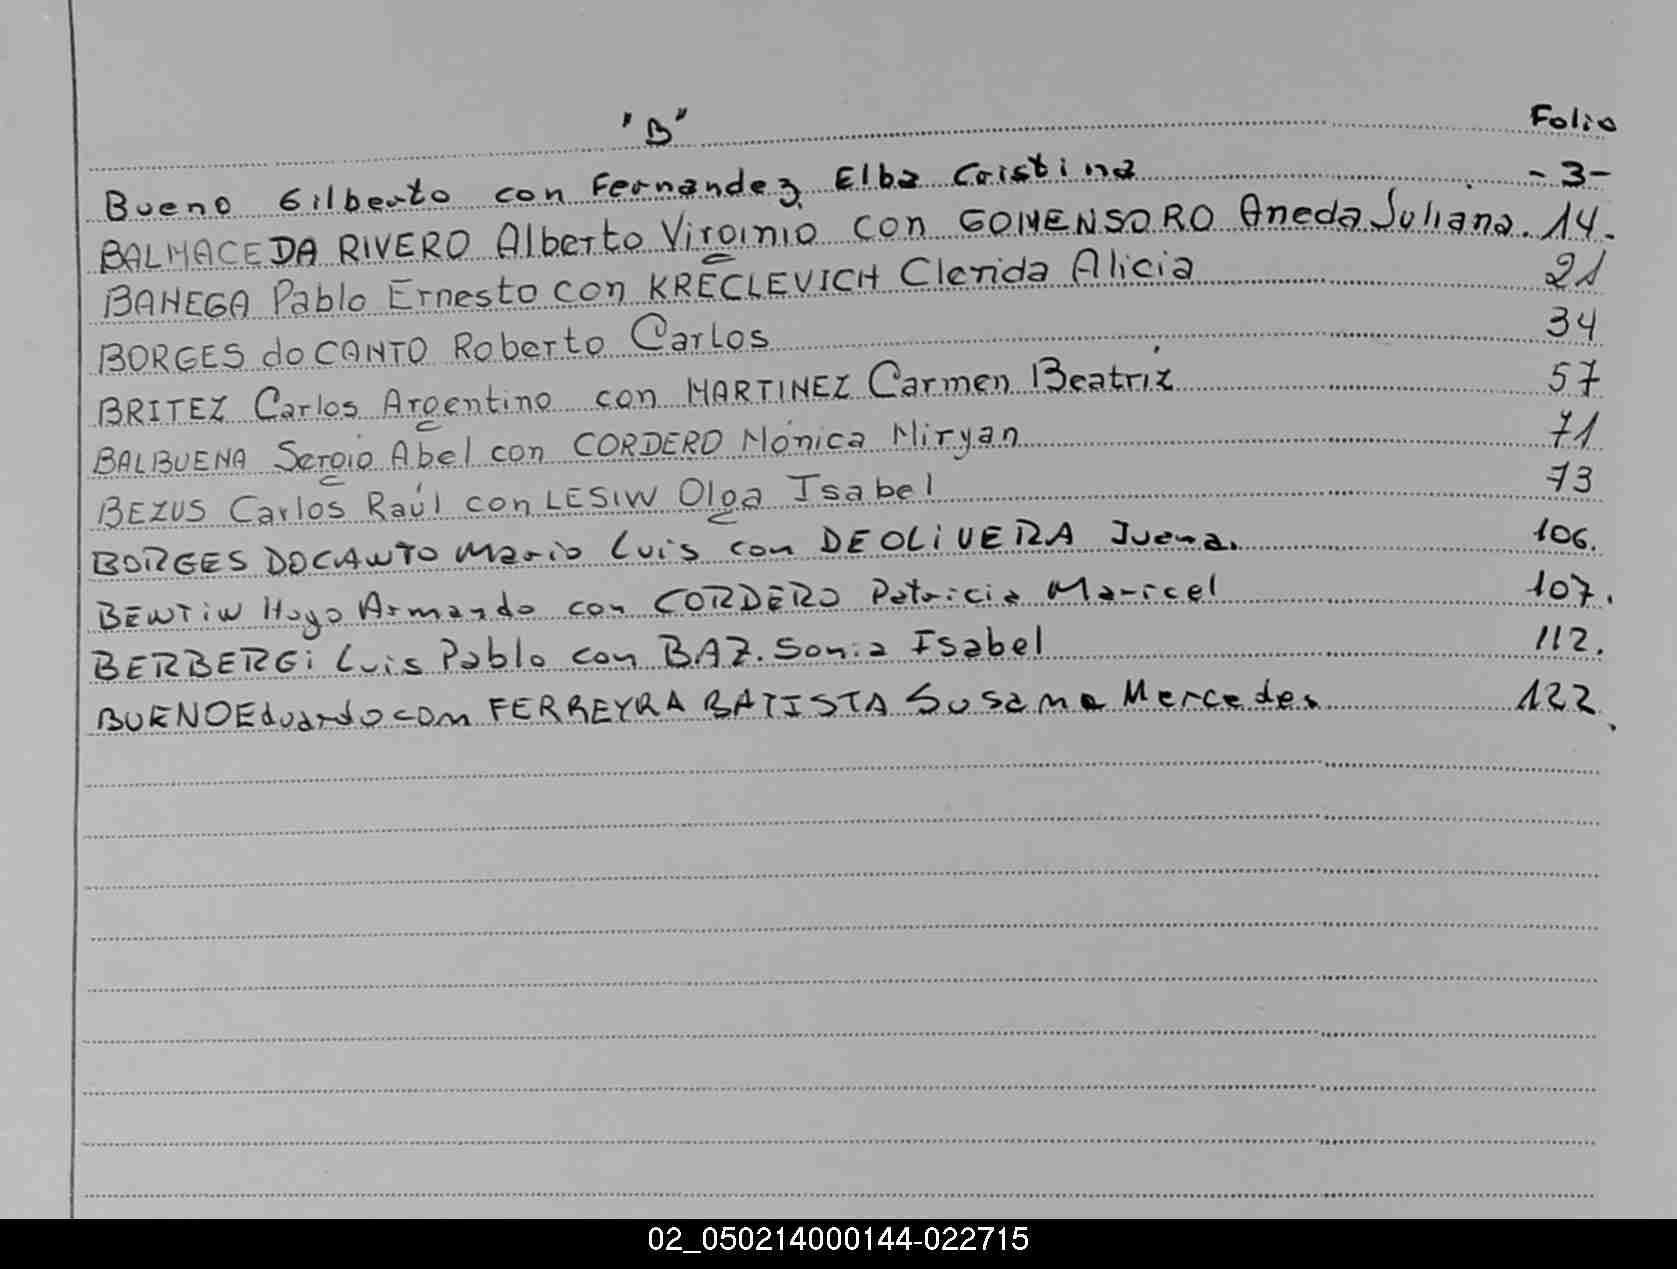 "B" Folio
Bueno Gilberto con Fernandez Elba Cristina -3-
BALMACEDA RIVERO Alberto Virginio con GOMENSORO Aneda Juliana. 14.
BANEGA Pablo Ernesto con KRECLEVICH Clerida Alicia 21
BORGES do CANTO Roberto Carlos 34
BRITEZ Carlos Argentino con MARTINEZ Carmen Beatriz 57
BALBUENA Sergio Abel con CORDERO Mónica Miryan 71
BEZUS Carlos Raúl con LESIW Olga Isabel 73
BORGES DOCANTO Mario Luis con DEOLiVERA Juana. 106.
BENTiN Hugo Armando con CORDERO Patricia Maricel 107.
BERBERGi Luis Pablo con BAZ. Sonia Isabel 112.
BUENO Eduardo con FERREYRA BATISTA Susana Mercedes 122.
02_050214000144-022715